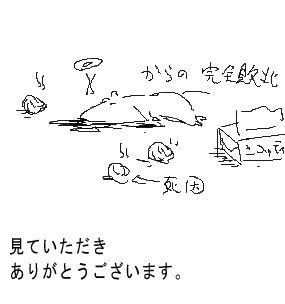 からの 完全敗北
死因
見ていただき
ありがとうございます。